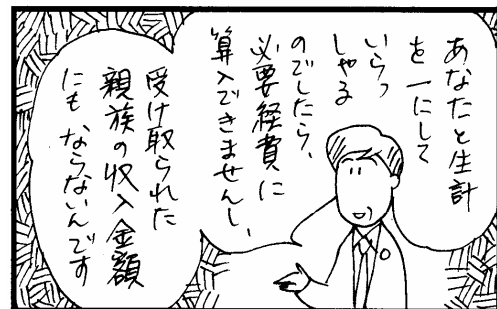 あなたと生計
を一にして
いらっ
しゃる
のでしたら、
必要経費に
算入できませんし、
受け取られた
親族の収入金額
にもならないんです